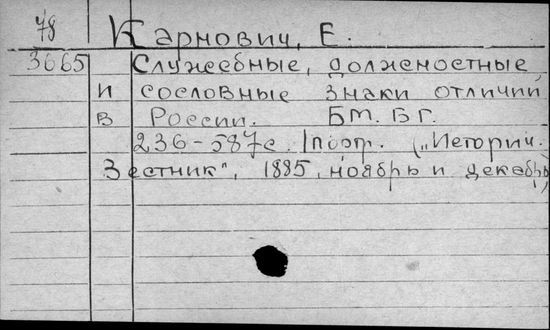 78 Карнович, Е.
3665 Служебные, должностные,
и сословные знаки отличий
в России. БМ. БГ.
236-587с. 1порт. („Историч.
Вестник", 1885, ноябрь и декабрь)